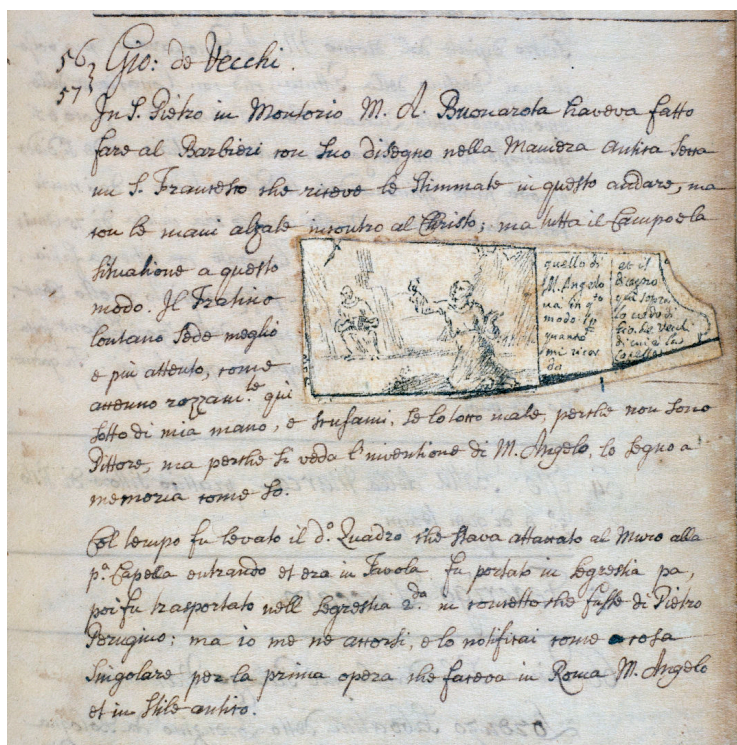 56 Gio: de Vecchi.
57
In S. Pietro in Montorio M. A. Buonarota haveva fatto
fare al Barbieri con suo disegno nella Maniera antica secca
un S. Francesco che riceve le Stimmate in questo andare, ma
con le mani alzate incontro al Christo; ma tutta il Campo e la
situatione a questo
modo. Il Fratino
lontano sede meglio
e più attento, come
accenno rozzam.te qui
sotto di mia mano, e scusami, se lo tocco male, perche non sono
Pittore, ma perche si veda l'inventione di M. Angelo, lo segno a
memoria come so.
quello di
M. Angelo
va in q.to
modo
quanto
mi ricor
da
et il
disegno
qui sopra
lo credo di
Gio. de Vecchi
di cui è la
Capella
Col tempo fu levato il d.o Quadro che stava attaccato al Muro alla
p.a Capella entrando et era in Tavola fu portato in segrestia pa,
poi fu trasportato nell segrestia 2.da in concetto che fusse di Pietro
Perugino; ma io me ne accorsi, e lo notificai come cosa
singolare per la prima opera che faceva in Roma M. Angelo
et in stile antico.